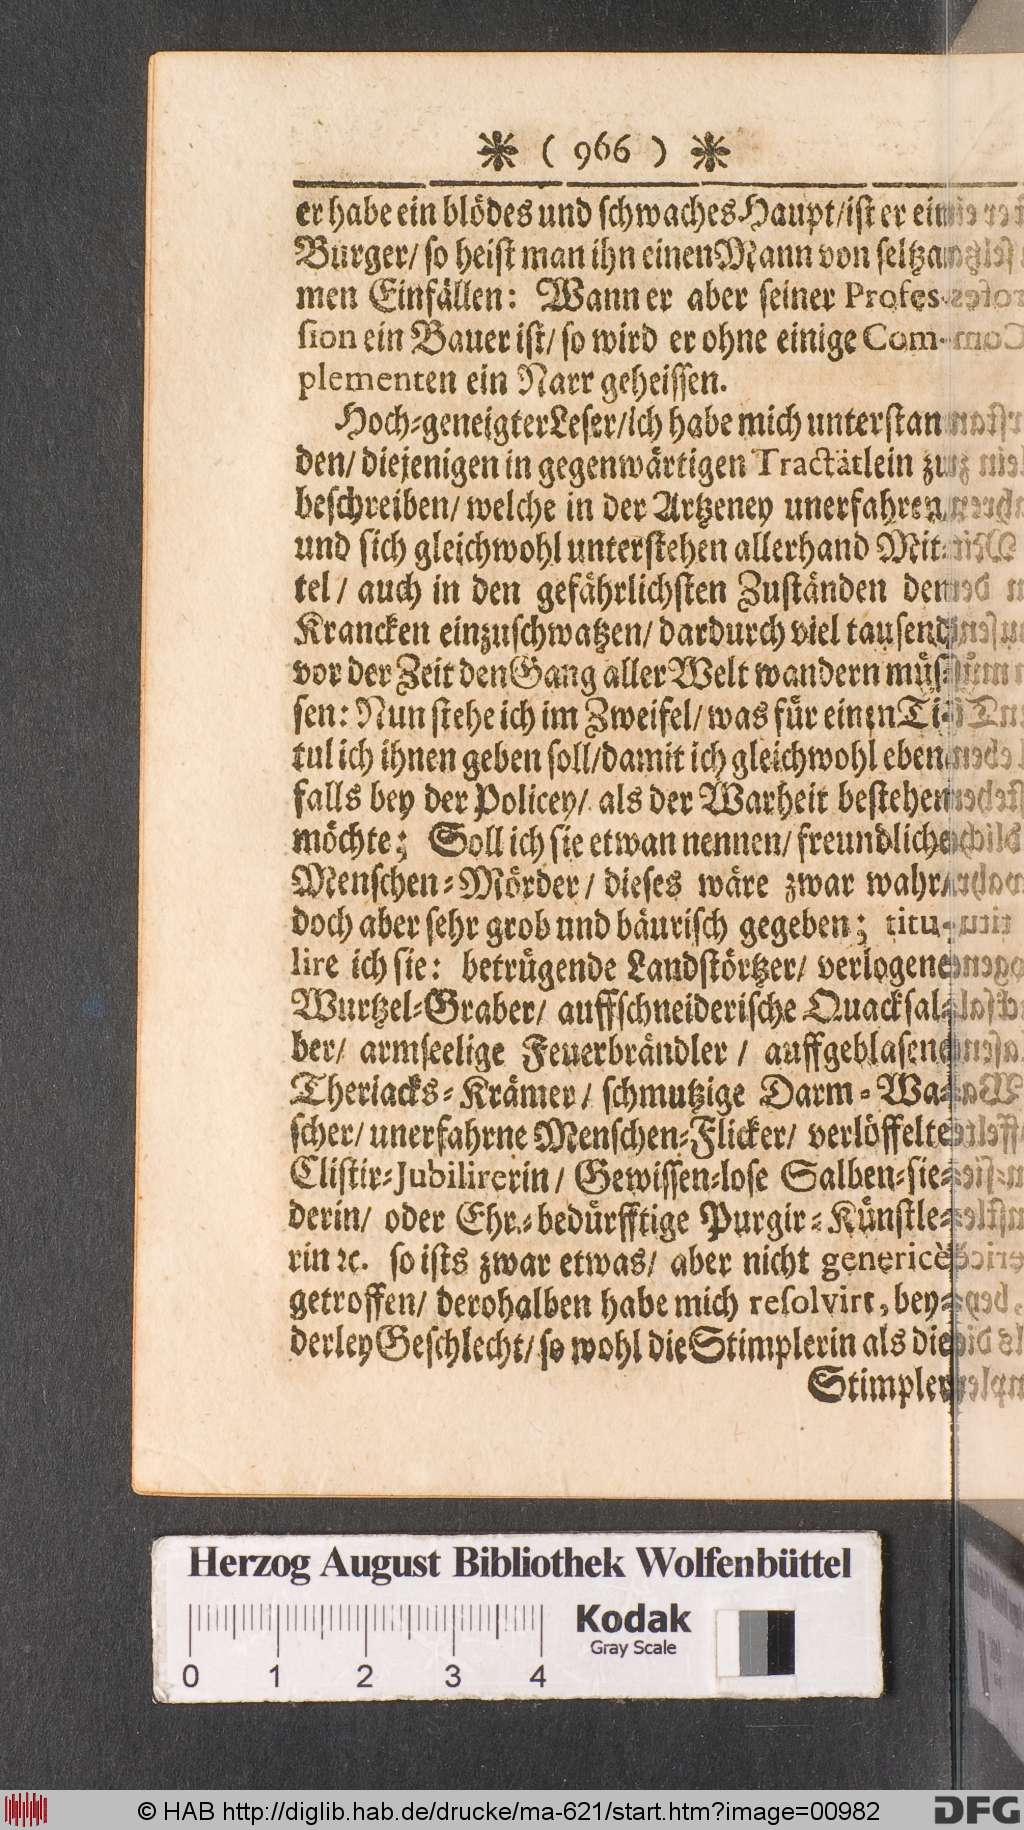 ( 966 )
er habe ein blödes und schwaches Haupt/ist er ein
Burger/ so heist man ihn einen Mann von seltza-
men Einfällen: Wann er aber seiner Profes-
sion ein Bauer ist/ so wird er ohne einige Com-
plementen ein Narr geheissen.
Hoch-geneigter Leser/ich habe mich unterstan-
den/ diejenigen in gegenwärtigen Tractätlein zu
beschreiben/ welche in der Artzeney unerfahren,
und sich gleichwohl unterstehen allerhand Mit-
tel/ auch in den gefährlichsten Zuständen denen
Krancken einzuschwatzen/ dardurch viel tausend
vor der Zeit den Gang aller Welt wandern müs-
sen: Nun stehe ich im Zweifel/ was für einen Ti-
tul ich ihnen geben soll/damit ich gleichwohl eben-
falls bey der Policey/ als der Warheit bestehen
möchte; Soll ich sie etwan nennen/ freundliche
Menschen-Mörder/ dieses wäre zwar wahr/
doch aber sehr grob und bäurisch gegeben; titu-
lire ich sie: betrügende Landstörtzer/ verlogene
Wurtzel-Graber/ auffschneiderische Quacksal-
ber/ armseelige Feuerbrändler/ auffgeblasene
Theriacks-Krämer/ schmutzige Darm-Wa-
scher/ unerfahrne Menschen-Flicker/ verlöffelte
Clistir-Jubilirerin/ Gewissen-lose Salben-sie-
derin/ oder Ehr-bedürfftige Purgir-Künstle-
rin ꝛc. so ists zwar etwas/ aber nicht genericè
getroffen/ derohalben habe mich resolvirt, bey-
derley Geschlecht/ so wohl die Stimplerin als die
Stimpler
Herzog August Bibliothek Wolfenbüttel
Kodak
Gray Scale
0 1 2 3 4
© HAB http://diglib.hab.de/drucke/ma-621/start.htm?image=00982
DFG